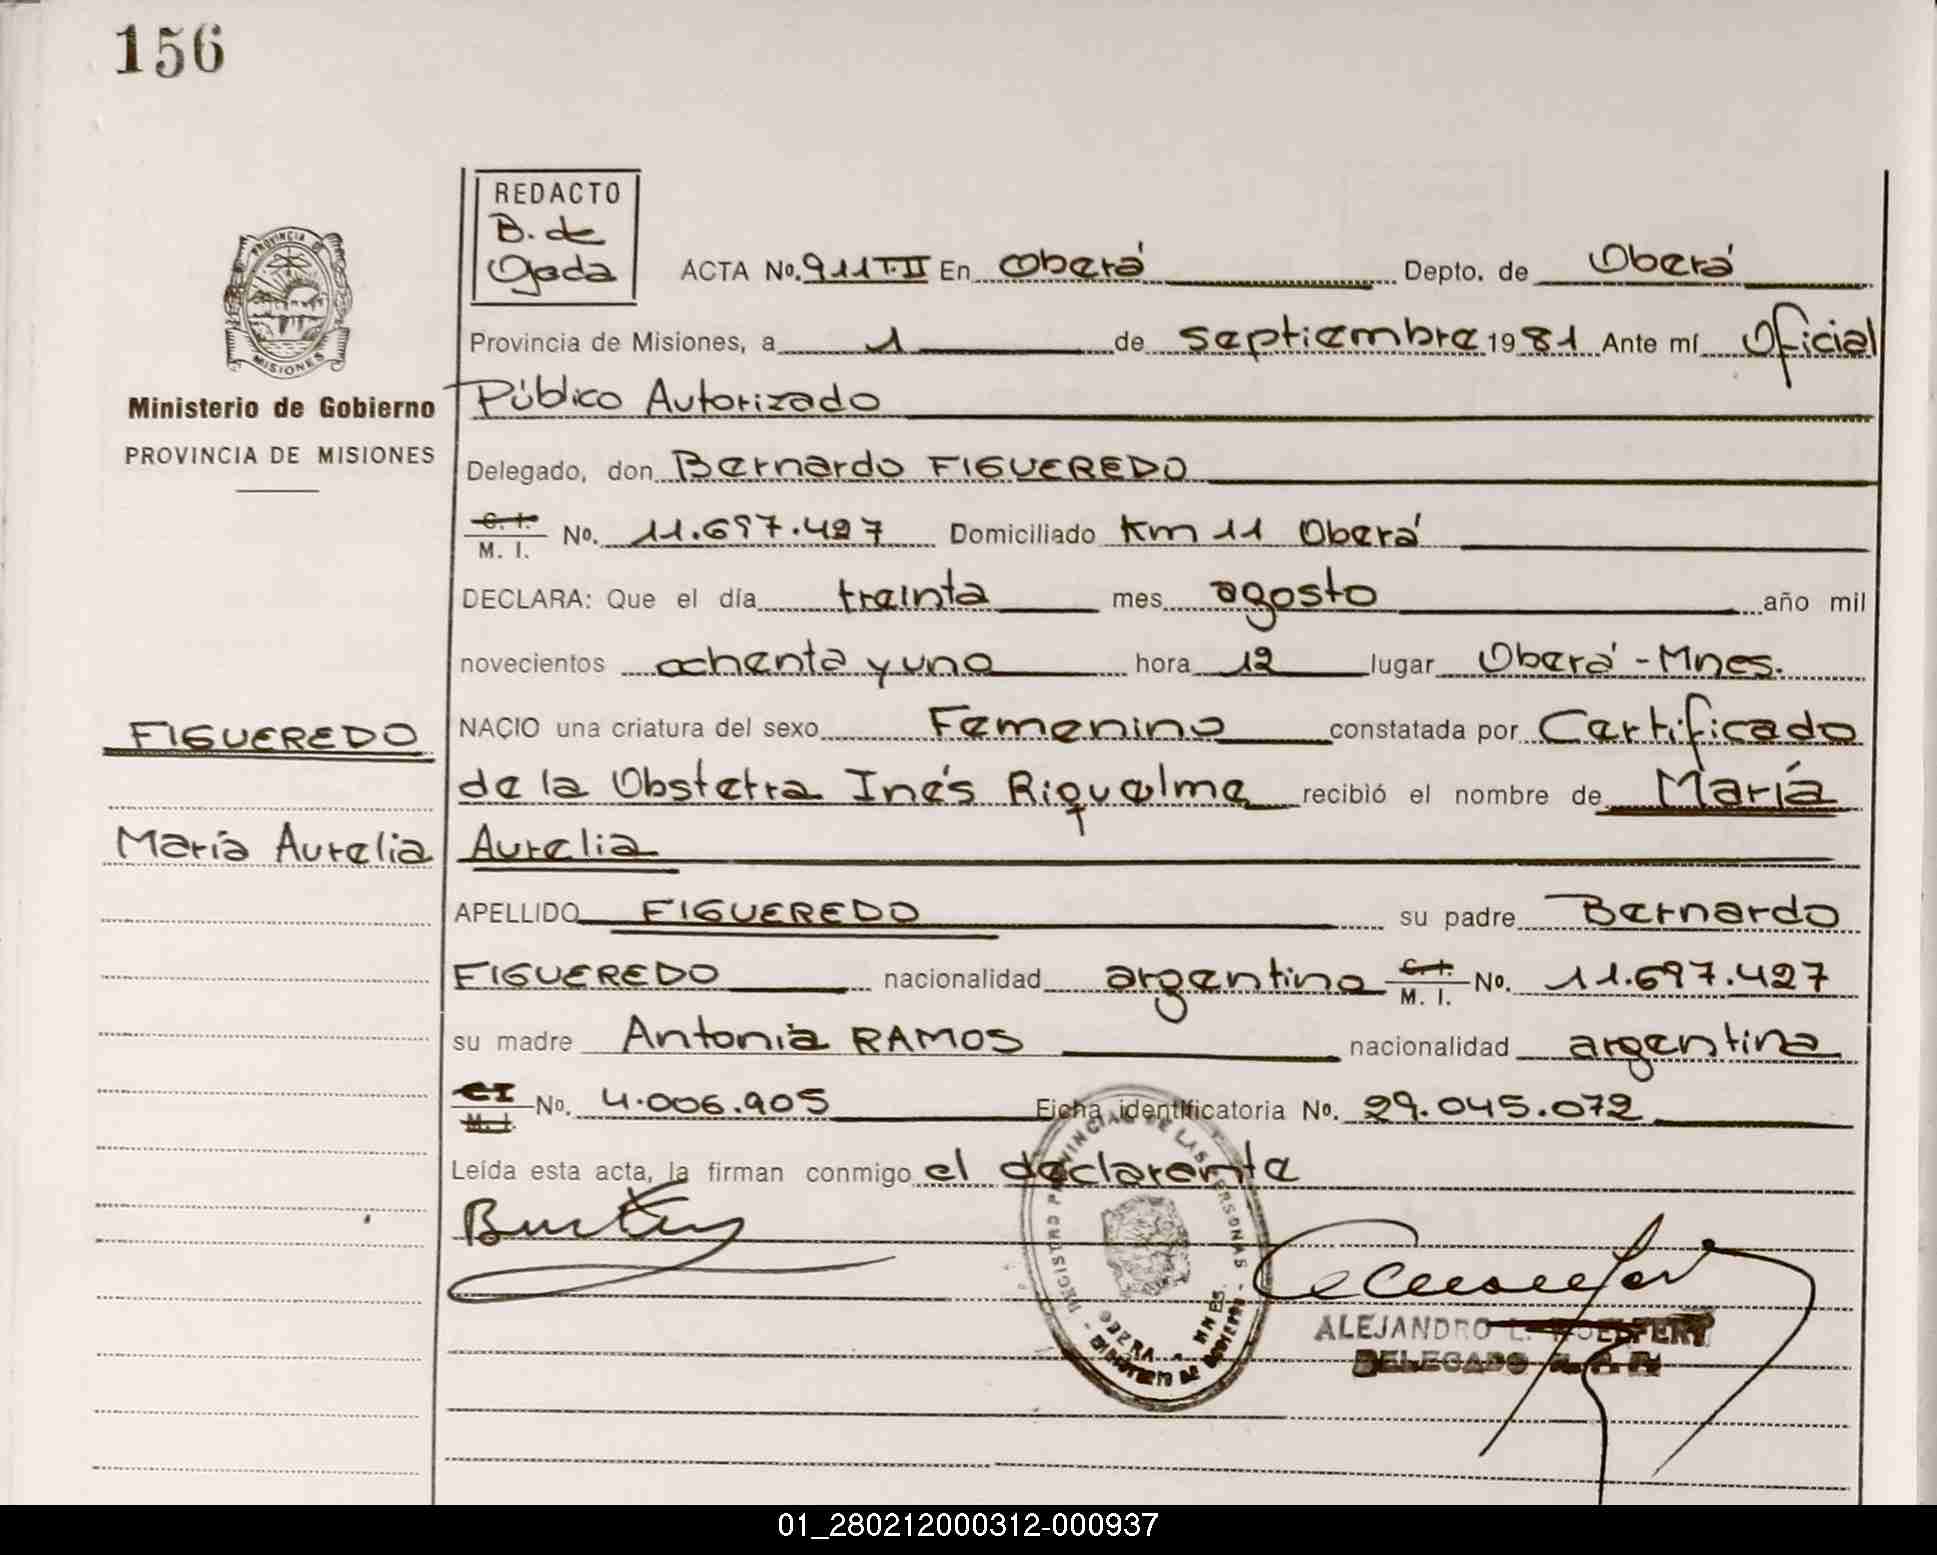 156
REDACTO
B. de
Ojeda
ACTA No. 911 T.II En Oberá Depto. de Oberá
Provincia de Misiones, a 1 de septiembre 1981 Ante mí Oficial
Público Autorizado
Ministerio de Gobierno
PROVINCIA DE MISIONES
Delegado, don Bernardo FIGUEREDO
C. I.
M. I. No. 11.697.427 Domiciliado Km 11 Oberá
DECLARA: Que el día treinta mes agosto año mil
novecientos ochenta y uno hora 12 lugar Oberá - Mnes.
FIGUEREDO
NACIO una criatura del sexo Femenino constatada por Certificado
de la Obstetra Inés Riquelme recibió el nombre de María
María Aurelia
Aurelia
APELLIDO FIGUEREDO su padre Bernardo
FIGUEREDO nacionalidad argentina C. I.
M. I. No. 11.697.427
su madre Antonia RAMOS nacionalidad argentina
CI
M. I. No. 4.006.905 Ficha identificatoria No. 29.045.072
Leída esta acta, la firman conmigo el declarente
REGISTRO PROVINCIAL DE LAS PERSONAS
MNES.
ALEJANDRO L.
DELEGADO
01_280212000312-000937